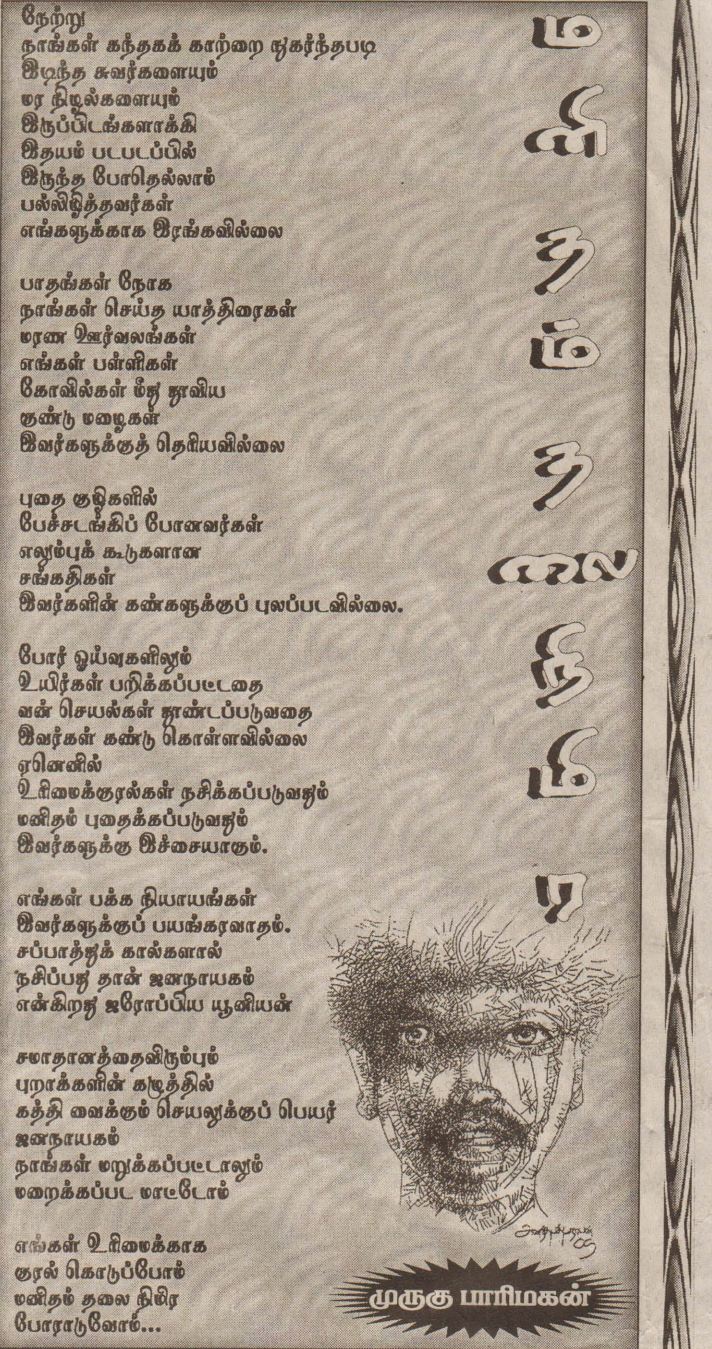 மனிதம் தலை நிமிர
நேற்று
நாங்கள் கந்தகக் காற்றை நுகர்ந்தபடி
இடிந்த சுவர்களையும்
மர நிழல்களையும்
இருப்பிடங்களாக்கி
இதயம் படபடப்பில்
இருந்த போதெல்லாம்
பல்லிழித்தவர்கள்
எங்களுக்காக இரங்கவில்லை
பாதங்கள் நோக
நாங்கள் செய்த யாத்திரைகள்
மரண ஊர்வலங்கள்
எங்கள் பள்ளிகள்
கோவில்கள் மீது தூவிய
குண்டு மழைகள்
இவர்களுக்குத் தெரியவில்லை
புதை குழிகளில்
பேச்சடங்கிப் போனவர்கள்
எலும்புக் கூடுகளான
சங்கதிகள்
இவர்களின் கண்களுக்குப் புலப்படவில்லை.
போர் ஓய்வுகளிலும்
உயிர்கள் பறிக்கப்பட்டதை
வன் செயல்கள் தூண்டப்படுவதை
இவர்கள் கண்டு கொள்ளவில்லை
ஏனெனில்
உரிமைக்குரல்கள் நசிக்கப்படுவதும்
மனிதம் புதைக்கப்படுவதும்
இவர்களுக்கு இச்சையாகும்.
எங்கள் பக்க நியாயங்கள்
இவர்களுக்குப் பயங்கரவாதம்.
சப்பாத்துக் கால்களால்
நசிப்பது தான் ஜனநாயகம்
என்கிறது ஐரோப்பிய யூனியன்
சமாதானத்தைவிரும்பும்
புறாக்களின் கழுத்தில்
கத்தி வைக்கும் செயலுக்குப் பெயர்
ஜனநாயகம்
நாங்கள் மறுக்கப்பட்டாலும்
மறைக்கப்பட மாட்டோம்
எங்கள் உரிமைக்காக
குரல் கொடுப்போம்
மனிதம் தலை நிமிர
போராடுவோம்...
முருகு பாரிமகன்